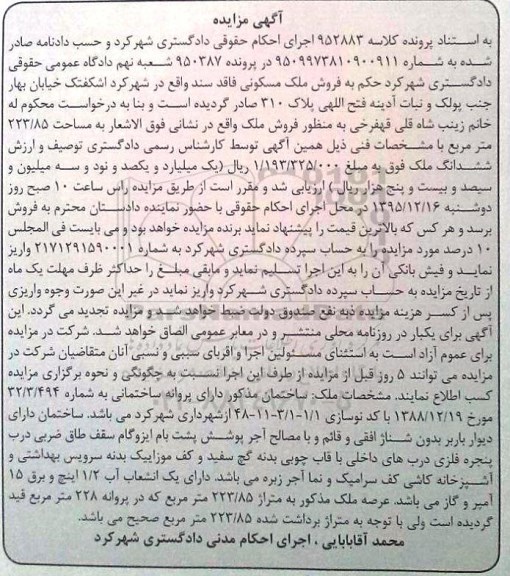 آگهی مزایده
به استناد پرونده کلاسه ۹۵۲۸۸۳ اجرای احکام حقوقی دادگستری شهرکرد و حسب دادنامه صادر
شده به شماره ۹۵۰۹۹۷۳۸۱۰۹۰۰۹۱۱ در پرونده ۹۵۰۳۸۷ شعبه نهم دادگاه عمومی حقوقی
دادگستری شهرکرد حکم به فروش ملک مسکونی فاقد سند واقع در شهرکرد اشکفتک خیابان بهار
جنب پولک و نبات آدینه فتح اللهی پلاک ۳۱۰ صادر گردیده است و بنا به درخواست محکوم له
خانم زینب شاه قلی قهفرخی به منظور فروش ملک واقع در نشانی فوق الاشعار به مساحت ۲۲۳/۸۵
متر مربع با مشخصات فنی ذیل همین آگهی توسط کارشناس رسمی دادگستری توصیف و ارزش
ششدانگ ملک فوق به مبلغ ۱/۱۹۳/۳۲۵/۰۰۰ ریال (یک میلیارد و یکصد و نود و سه میلیون و
سیصد و بیست و پنج هزار ریال) ارزیابی شد و مقرر است از طریق مزایده راس ساعت ۱۰ صبح روز
دوشنبه ۱۳۹۵/۱۲/۱۶ در محل اجرای احکام حقوقی با حضور نماینده دادستان محترم به فروش
برسد و هر کس که بالاترین قیمت را پیشنهاد نماید برنده مزایده خواهد بود و می بایست فی المجلس
۱۰ درصد مورد مزایده را به حساب سپرده دادگستری شهرکرد به شماره ۲۱۷۱۲۹۱۵۹۰۰۰۱ واریز
نمایند و فیش بانکی آن را به این اجرا تسلیم نماید و مابقی مبلغ را حداکثر ظرف مهلت یک ماه
از تاریخ مزایده به حساب سپرده دادگستری شهرکرد واریز نماید در غیر این صورت وجوه واریزی
پس از کسر هزینه مزایده به نفع صندوق دولت ضبط خواهد شد و مزایده تجدید می گردد. این
آگهی برای یکبار در روزنامه محلی منتشر و در معابر عمومی الصاق خواهد شد. شرکت در مزایده
برای عموم آزاد است به استثنای مسئولین اجرا و اقربای سببی و نسبی آنان متقاضیان شرکت در
مزایده می توانند ۵ روز قبل از مزایده از طرف این اجرا نسبت به چگونگی و نحوه برگزاری مزایده
کسب اطلاع نمایند. مشخصات ملک: ساختمان مذکور دارای پروانه ساختمانی به شماره ۳۲/۳/۴۹۴
مورخ ۱۳۸۸/۱۲/۱۹ با کد نوسازی ۱/۱-۳/۱-۱۱-۴۸ ازشهرداری شهرکرد می باشد. ساختمان دارای
دیوار باربر بدون شناژ افقی و قائم و با مصالح آجر پوشش پشت بام ایزوگام سقف طاق ضربی درب
پنجره فلزی درب های داخلی با قاب چوبی بدنه گچ سفید و کف موزاییک بدنه سرویس بهداشتی و
آشپزخانه کاشی کف سرامیک و نما آجر زبره می باشد. دارای یک انشعاب آب ۱/۲ اینچ و برق ۱۵
آمپر و گاز می باشد. عرصه ملک مذکور به متراژ ۲۲۳/۸۵ متر مربع که در پروانه ۲۲۸ متر مربع قید
گردیده است ولی با توجه به متراژ برداشت شده ۲۲۳/۸۵ متر مربع صحیح می باشد.
محمد آقابابایی ، اجرای احکام مدنی دادگستری شهرکرد